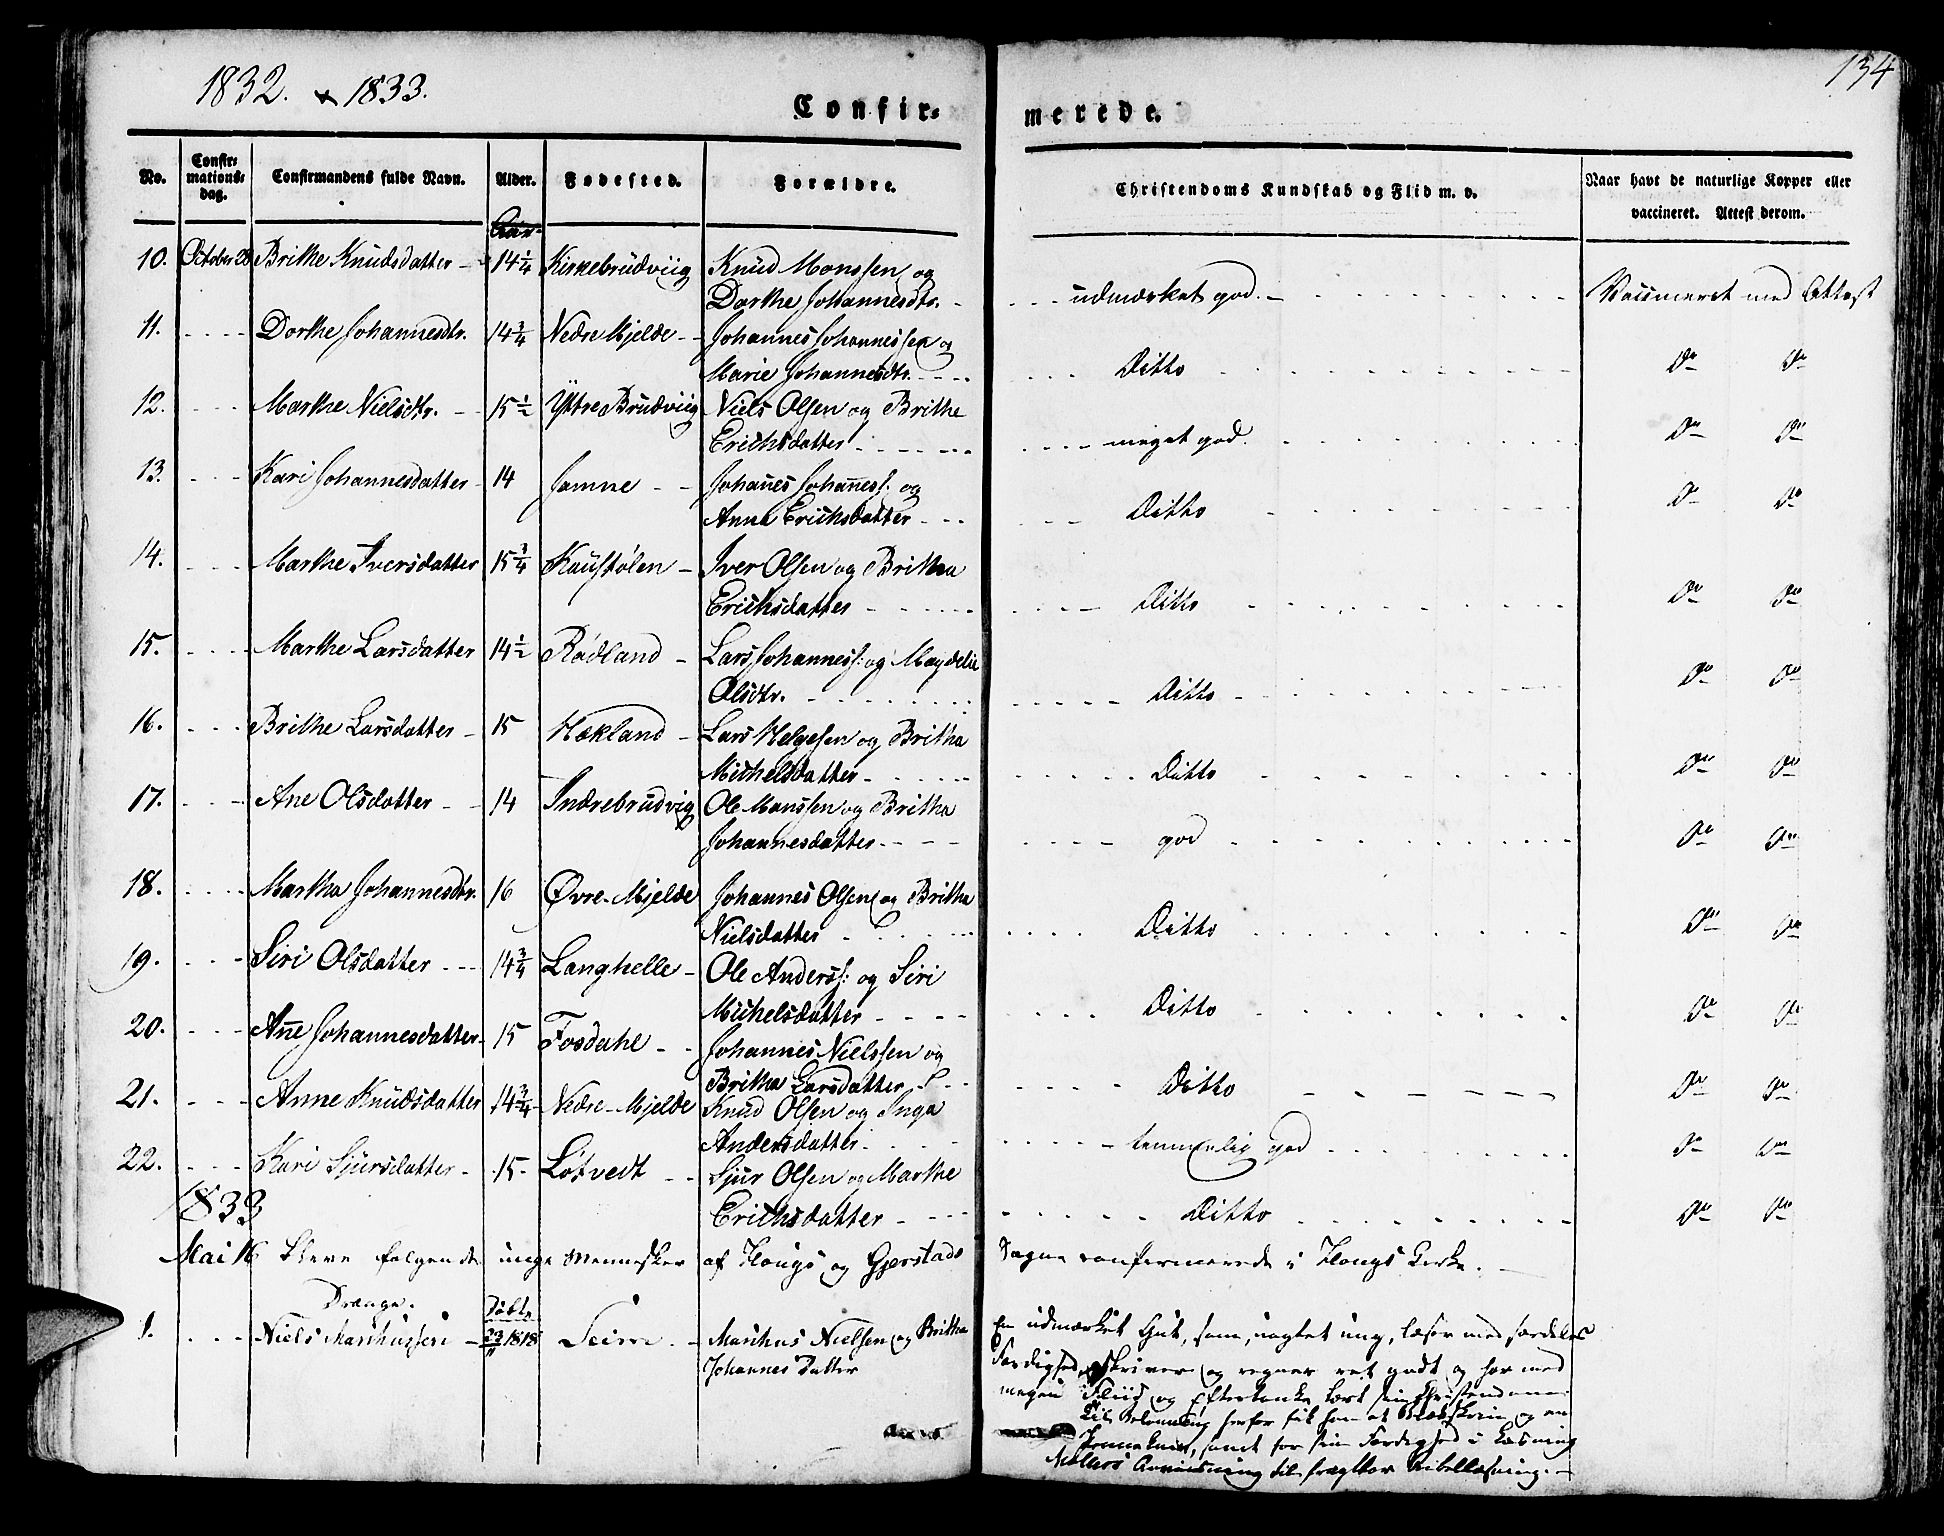 1832. & 1833.
134
Confir-
merede.
No.
Confir-
mations-
dag.
Confirmandens fulde Navn.
Alder.
Fødested.
Forældre.
Christendoms Kundskab og Flid m. v.
Naar havt de naturlige Kopper eller
vaccineret. Attest derom.
Aar
10. October 28 Brithe Knudsdatter 14 1/4 Kirkebrudviig Knud Monssen og
Dorthe Johannesdtr. udmærket god. Vaccineret med Attest
11. Dorthe Johannesdtr. 14 3/4 Nedre Mjelde Johannes Johannessen og
Marie Johannesdtr. Ditto Do Do
12. Marthe Nielsdtr. 15 1/2 Yttre Brudviig Niels Olsen og Brithe
Erichsdatter meget god. Do Do
13. Kari Johannesdatter 14 Jamne Johanes Johaness: og
Anna Erichsdatter Ditto Do Do
14. Marthe Iversdatter 15 3/4 Koustølen Iver Olsen og Britha
Erichsdatter Ditto Do Do
15. Marthe Larsdatter 14 1/2 Rødland Lars Johanness: og Magdelie
Olsdtr. Ditto Do Do
16. Brithe Larsdatter 15 Hækland Lars Helgesen og Britha
Michelsdatter Ditto Do Do
17. Ane Olsdatter 14 Indrebrudvig Ole Monssen og Britha
Johannesdatter god Do Do
18. Martha Johannesdtr. 16 Øvre-Mjelde Johannes Olsen og Britha
Nielsdatter Ditto Do Do
19. Siri Olsdatter 14 3/4 Langhelle Ole Anderss: og Siri
Michelsdatter Ditto Do Do
20. Ane Johannesdatter 15 Fosdahl Johannes Nielssen og
Britha Larsdatter Ditto Do Do
21. Anne Knudsdatter 14 3/4 Nedre-Mjelde Knud Olsen og Inga
Andersdatter temmelig god Do Do
22. Kari Sjursdatter 15 Løtvedt Sjur Olsen og Marthe
Erichsdatter Ditto Do Do
1833
Mai 16 bleve følgende unge Mennesker af Hougs og Gjerstads Sogne confirmerede i Hougs Kirke.
Drenge. Døbt
1. Niels Marchussen 23/11 1818 Seim Marchus Nielsen og Britha
Johannes Datter
En udmærket Gut, som, uagtet ung, læser med særdeles
Færdighed, skriver og regner ret godt og har med
megen Fliid og Eftertanke lært sin Christendom.
Til Belønning herfor fik han et Blækskrin og en
Pennekniv, samt for sin Færdighed i Læsning
Møllers Anviisning til frugtbar Bibellæsning.